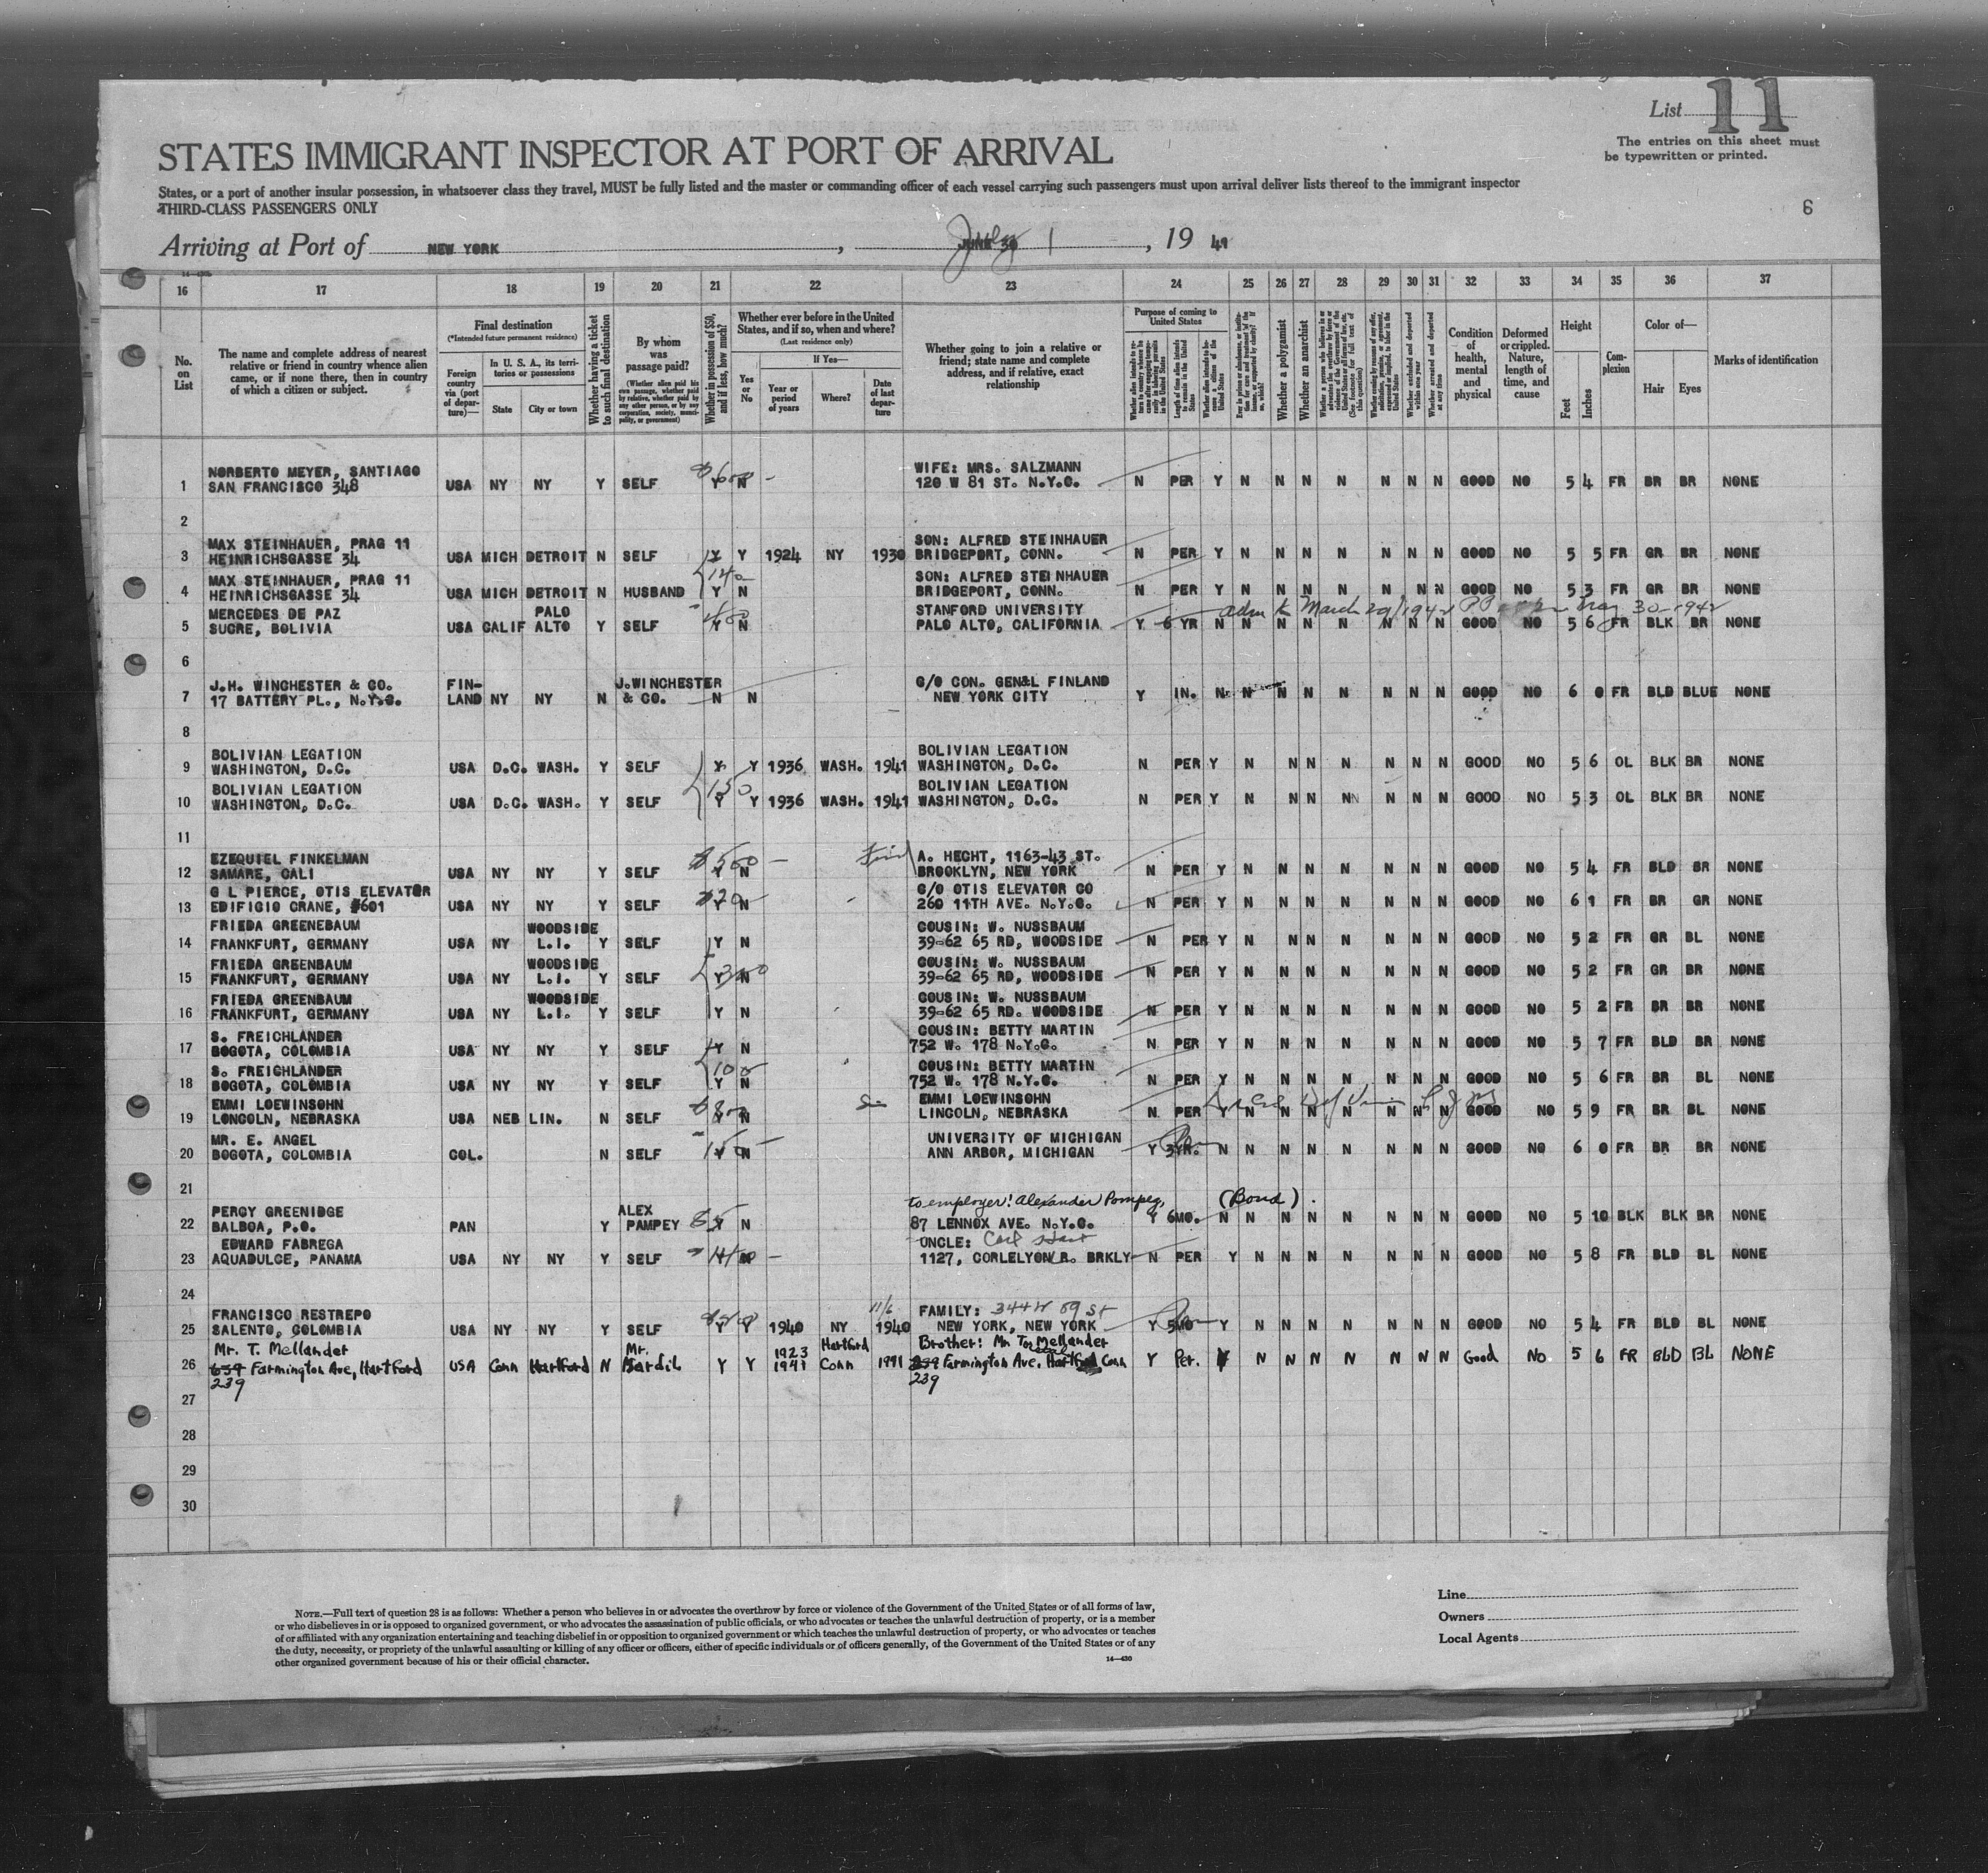 List 11
The entries on this sheet must
be typewritten or printed.
STATES IMMIGRANT INSPECTOR AT PORT OF ARRIVAL
States, or a port of another insular possession, in whatsoever class they travel, MUST be fully listed and the master or commanding officer of each vessel carrying such passengers must upon arrival deliver lists thereof to the immigrant inspector
THIRD-CLASS PASSENGERS ONLY
6
Arriving at Port of NEW YORK, JUNE 30 July 1, 19 41
16 17 18 19 20 21 22 23 24 25 26 27 28 29 30 31 32 33 34 35 36 37
No. on List
The name and complete address of nearest relative or friend in country whence alien came, or if none there, then in country of which a citizen or subject.
Final destination
(*Intended future permanent residence)
Foreign country via (port of departure)—
In U. S. A., its territories or possessions
State
City or town
Whether having a ticket to such final destination
By whom was passage paid?
(Whether alien paid his own passage, whether paid by relative, whether paid by any other person, or by any corporation, society, municipality, or government)
Whether in possession of $50, and if less, how much?
Whether ever before in the United States, and if so, when and where?
(Last residence only)
If Yes—
Yes or No
Year or period of years
Where?
Date of last departure
Whether going to join a relative or friend; state name and complete address, and if relative, exact relationship
Purpose of coming to United States
Whether a polygamist
Whether an anarchist
Condition of health, mental and physical
Deformed or crippled. Nature, length of time, and cause
Height
Feet
Inches
Complexion
Color of—
Hair
Eyes
Marks of identification
NORBERTO MEYER, SANTIAGO $600 - WIFE: MRS. SALZMANN
1 SAN FRANCISCO 348 USA NY NY Y SELF Y N 120 W 81 ST. N.Y.C. N PER Y N N N N N N N GOOD NO 5 4 FR BR BR NONE
2
MAX STEINHAUER, PRAG 11 SON: ALFRED STEINHAUER
3 HEINRICHSGASSE 34 USA MICH DETROIT N SELF Y Y 1924 NY 1930 BRIDGEPORT, CONN. N PER Y N N N N N N N GOOD NO 5 5 FR GR BR NONE
MAX STEINHAUER, PRAG 11 SON: ALFRED STEINHAUER
4 HEINRICHSGASSE 34 USA MICH DETROIT N HUSBAND Y N BRIDGEPORT, CONN. N PER Y N N N N N N N GOOD NO 5 3 FR GR BR NONE
MERCEDES DE PAZ PALO STANFORD UNIVERSITY March 29/1942 30-1942
5 SUCRE, BOLIVIA USA CALIF ALTO Y SELF Y N PALO ALTO, CALIFORNIA Y 6 YR N N N N N N N N GOOD NO 5 6 FR BLK BR NONE
6
J.H. WINCHESTER & CO. FIN- J.WINCHESTER C/O CON. GEN&L FINLAND
7 17 BATTERY PL., N.Y.C. LAND NY NY N & CO. N N NEW YORK CITY Y IN. N N N N N N N N GOOD NO 6 0 FR BLD BLUE NONE
8
BOLIVIAN LEGATION BOLIVIAN LEGATION
9 WASHINGTON, D.C. USA D.C. WASH. Y SELF Y Y 1936 WASH. 1941 WASHINGTON, D.C. N PER Y N N N N N N N GOOD NO 5 6 OL BLK BR NONE
BOLIVIAN LEGATION 150 BOLIVIAN LEGATION
10 WASHINGTON, D.C. USA D.C. WASH. Y SELF Y Y 1936 WASH. 1941 WASHINGTON, D.C. N PER Y N N N N N N N GOOD NO 5 3 OL BLK BR NONE
11
EZEQUIEL FINKELMAN $500 - A. HECHT, 1163-43 ST.
12 SAMARE, CALI USA NY NY Y SELF Y N BROOKLYN, NEW YORK N PER Y N N N N N N N GOOD NO 5 4 FR BLD BR NONE
G L PIERCE, OTIS ELEVATOR C/O OTIS ELEVATOR CO
13 EDIFICIO CRANE, #601 USA NY NY Y SELF Y N 260 11TH AVE. N.Y.C. N PER Y N N N N N N N GOOD NO 6 1 FR BR GR NONE
FRIEDA GREENEBAUM WOODSIDE COUSIN: W. NUSSBAUM
14 FRANKFURT, GERMANY USA NY L.I. Y SELF Y N 39-62 65 RD, WOODSIDE N PER Y N N N N N N N GOOD NO 5 2 FR GR BL NONE
FRIEDA GREENBAUM WOODSIDE COUSIN: W. NUSSBAUM
15 FRANKFURT, GERMANY USA NY L.I. Y SELF Y N 39-62 65 RD, WOODSIDE N PER Y N N N N N N N GOOD NO 5 2 FR GR BR NONE
FRIEDA GREENBAUM WOODSIDE COUSIN: W. NUSSBAUM
16 FRANKFURT, GERMANY USA NY L.I. Y SELF Y N 39-62 65 RD. WOODSIDE N PER Y N N N N N N N GOOD NO 5 2 FR BR BR NONE
S. FREICHLANDER COUSIN: BETTY MARTIN
17 BOGOTA, COLOMBIA USA NY NY Y SELF Y N 752 W. 178 N.Y.C. N PER Y N N N N N N N GOOD NO 5 7 FR BLD BR NONE
S. FREICHLANDER 100 COUSIN: BETTY MARTIN
18 BOGOTA, COLOMBIA USA NY NY Y SELF Y N 752 W. 178 N.Y.C. N PER Y N N N N N N N GOOD NO 5 6 FR BR BL NONE
EMMI LOEWINSOHN EMMI LOEWINSOHN
19 LONCOLN, NEBRASKA USA NEB LIN. N SELF Y N LINCOLN, NEBRASKA N PER Y N N N N N N N GOOD NO 5 9 FR BR BL NONE
MR. E. ANGEL UNIVERSITY OF MICHIGAN
20 BOGOTA, COLOMBIA COL. N SELF Y N ANN ARBOR, MICHIGAN Y 3YR. N N N N N N N N GOOD NO 6 0 FR BR BR NONE
21 to employer! Alexander Pompey, (Bond).
PERCY GREENIDGE ALEX
22 BALBOA, P.O. PAN Y PAMPEY Y N 87 LENNOX AVE. N.Y.C. Y 6MO. N N N N N N N N GOOD NO 5 10 BLK BLK BR NONE
EDWARD FABREGA UNCLE: Carl
23 AQUADULCE, PANAMA USA NY NY Y SELF N 1127, CORLELYON R. BRKLY N PER Y N N N N N N N GOOD NO 5 8 FR BLD BL NONE
24
FRANCISCO RESTREPO 11/6 FAMILY: 344 W 89 St
25 SALENTO, COLOMBIA USA NY NY Y SELF Y Y 1940 NY 1940 NEW YORK, NEW YORK Y 5MO Y N N N N N N N GOOD NO 5 4 FR BLD BL NONE
Mr. T. Mellander Mr. 1923 Hartford Brother: Mr. Tore Mellander
26 639 Farmington Ave, Hartford USA Conn Hartford N Bardil Y Y 1941 Conn 1941 239 Farmington Ave. Hartford Conn Y Per. Y N N N N N N N Good No 5 6 FR BLD BL NONE
239 239
27
28
29
30
Line
Owners
Local Agents
NOTE.—Full text of question 28 is as follows: Whether a person who believes in or advocates the overthrow by force or violence of the Government of the United States or of all forms of law,
or who disbelieves in or is opposed to organized government, or who advocates the assassination of public officials, or who advocates or teaches the unlawful destruction of property, or is a member
of or affiliated with any organization entertaining and teaching disbelief in or opposition to organized government or which teaches the unlawful destruction of property, or who advocates or teaches
the duty, necessity, or propriety of the unlawful assaulting or killing of any officer or officers, either of specific individuals or of officers generally, of the Government of the United States or of any
other organized government because of his or their official character.
14—430